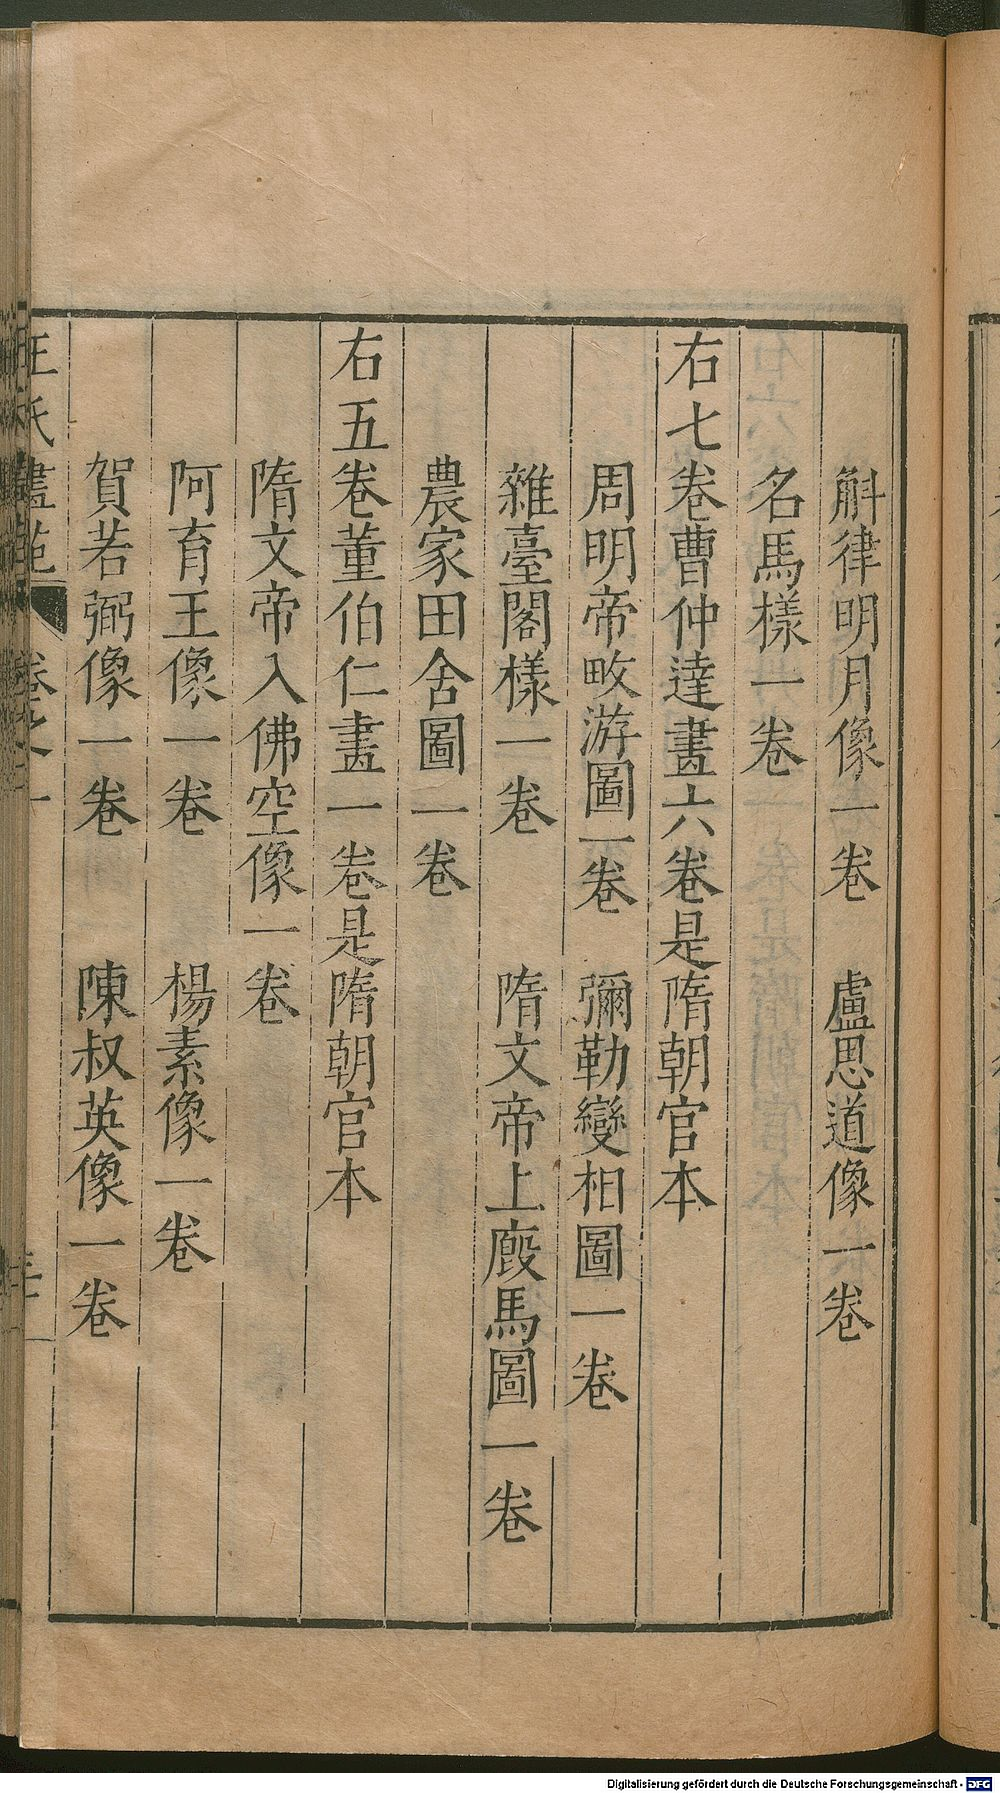 斛律明月像一卷　盧思道像一卷
名馬樣一卷
右七卷曹仲達畫六卷是隋朝官本
周明帝畋游圖一卷　彌勒變相圖一卷
雜臺閣樣一卷　隋文帝上廄馬圖一卷
農家田舍圖一卷
右五卷董伯仁畫一卷是隋朝官本
隋文帝入佛空像一卷
阿育王像一卷　楊素像一卷
賀若弼像一卷　陳叔英像一卷
王氏畫苑　卷之一
Digitalisierung gefördert durch die Deutsche Forschungsgemeinschaft - DFG